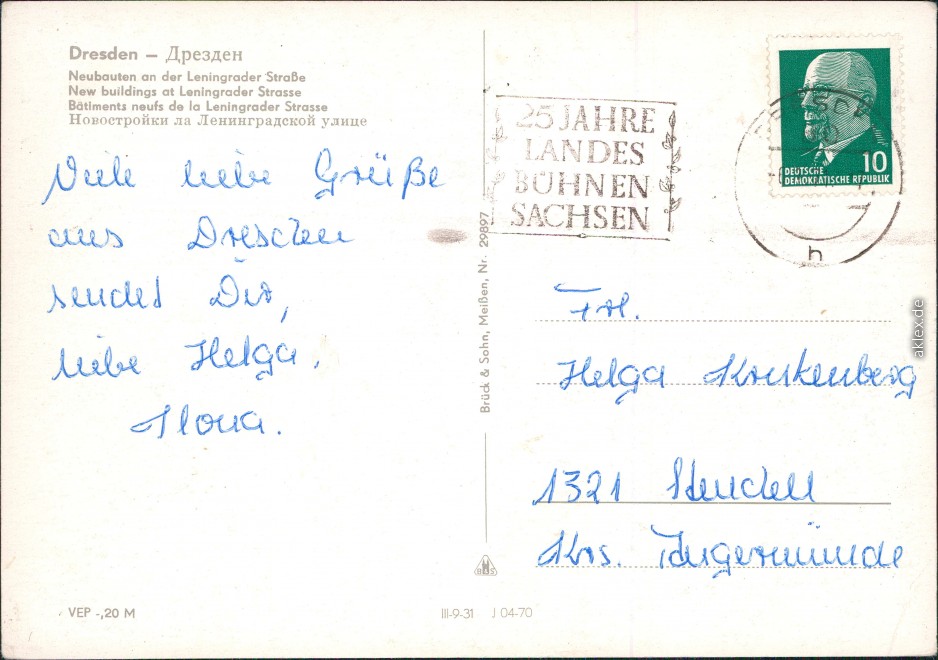 Dresden – Дрезден
Neubauten an der Leningrader Straße
New buildings at Leningrader Strasse
Bâtiments neufs de la Leningrader Strasse
Новостройки ла Ленинградской улице
Viele liebe Grüße
aus Dresden
sendet Dir,
liebe Helga,
Ilona.
VEP -,20 M
III-9-31 J 04-70
Brück & Sohn, Meißen, Nr. 29897
B&S
25 JAHRE
LANDES
BÜHNEN
SACHSEN
10
DEUTSCHE
DEMOKRATISCHE REPUBLIK
h
Frl.
Helga Krukenberg
1321 Stendell
Krs. Angermünde
akpool.de